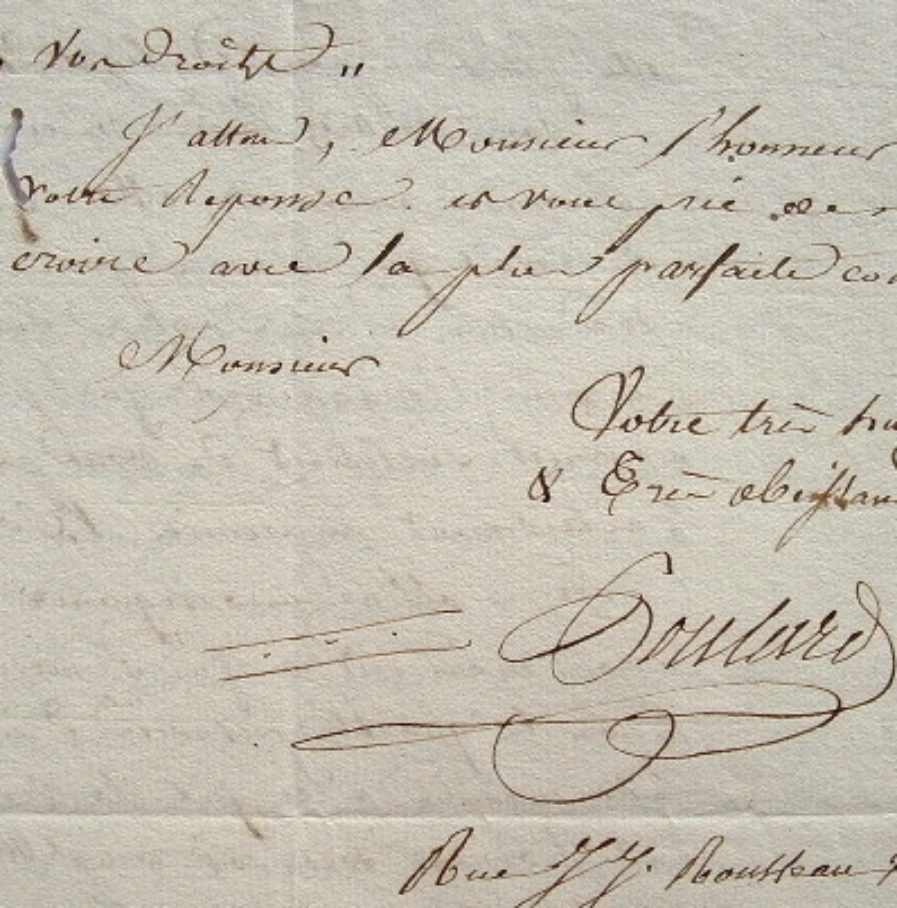 vos droits "
J'attends, Monsieur l'honneur
votre réponse et vous prie de
croire avec la plus parfaite con
Monsieur
Votre très hu
& très obeissan
Rue J. J. Rousseau